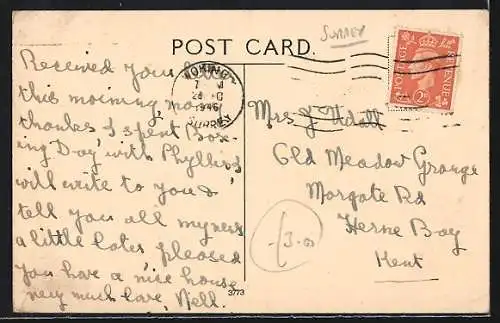 SURREY
POST CARD.
POSTAGE REVENUE
2D
WOKING
1946
SURREY
Received your
this morning many
thanks I spent Box-
ing Day with Phyllis
will write to you &
tell you all my news
a little later pleased
you have a nice house
very much love, Nell.
Mrs J
Old Meadow Grange
Margate Rd
Herne Bay
Kent
3773